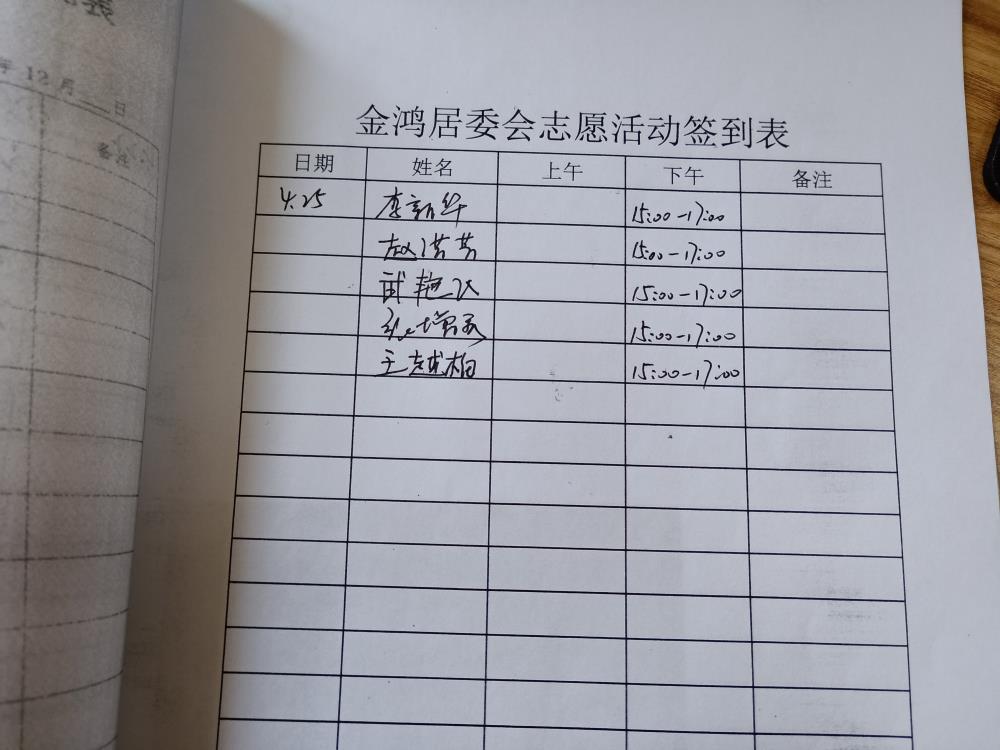 表
年 12 月 日
备注
金鸿居委会志愿活动签到表
日期 姓名 上午 下午 备注
4.25 李新华 15:00-17:00
赵洪芳 15:00-17:00
武艳飞 15:00-17:00
张增 15:00-17:00
王越柏 15:00-17:00